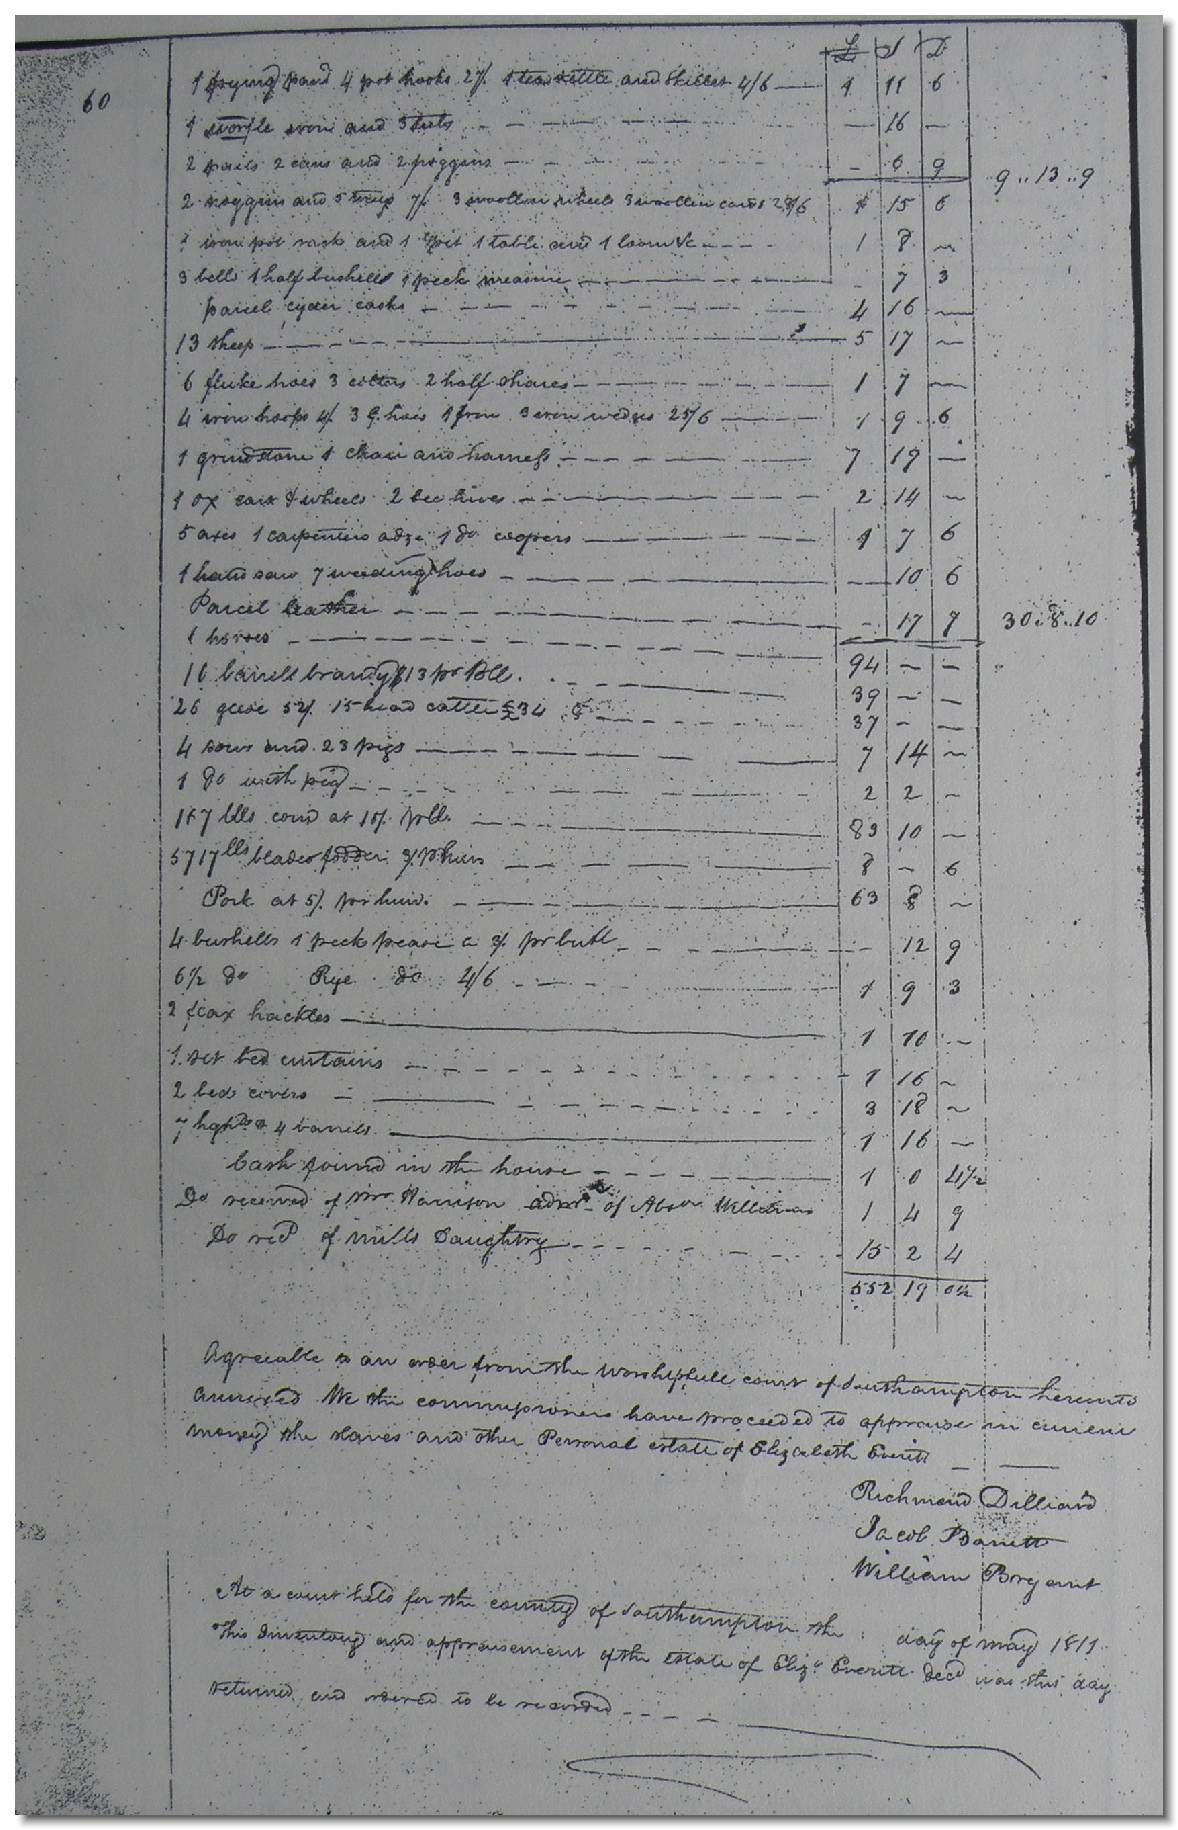 60
£ S D
1 frying pand 4 pot hooks 27/. 1 tea kettle and skillet 4/6 1 11 6
1 worfle iron and 3 16
2 pails 2 cans and 2 piggins 6 9 9..13..9
2 noggins and 5 7/. 3 woollen wheels 3 woollen cards 28/6 1 15 6
iron pot rack and 1 spit 1 table and 1 loom &c 1 8
3 bells 1 half bushells 1 peck measure 7 3
parcel cyder casks 4 16
13 sheep 5 17
6 fluke hoes 3 colters 2 half shares 1 7
4 iron hoops 4/. 3 hoes 1 3 iron wedges 25/6 1 9 6
1 grindstone 1 chair and harness 7 19
1 ox cart & wheels 2 bee hives 2 14
5 axes 1 carpenters adze 1 do coopers 1 7 6
1 hand saw 7 weeding hoes 10 6
Parcel leather 17 7 30..8..10
horses 94
barrells brandy 13 pr bbl. 39
26 geese 52/. 15 head cattle £34 37
4 sows and 23 pigs 7 14
1 do with pig 2 2
167 bbls corn at 10/. pr bb. 83 10
5717 lbs blades fodder 8 6
Pork at 5/. pr hun. 63 8
4 bushells 1 peck pease a 3/. pr bushl 12 9
6½ do Rye do 4/6 1 9 3
2 flax hackles 1 10
1 set bed curtains 1 16
2 bed covers 3 18
7 hghds & 4 barrels 1 16
Cash found in the house 1 0 4½
Do received of Mr. Harrison admr. of Absa Williams 1 4 9
Do recd of Mills Daughtry 15 2 4
552 19 0½
Agreeable to an order from the worshipfull court of Southampton hereunto
annexed We the commissioners have proceeded to appraise in current
money the slaves and other Personal estate of Elizabeth Everitt
Richmond Dilliard
Jacob Barrett
William Bryant
At a court held for the county of Southampton the day of may 1811
This Inventory and appraisement of the Estate of Eliza Everitt decd was this day
returned and ordered to be recorded